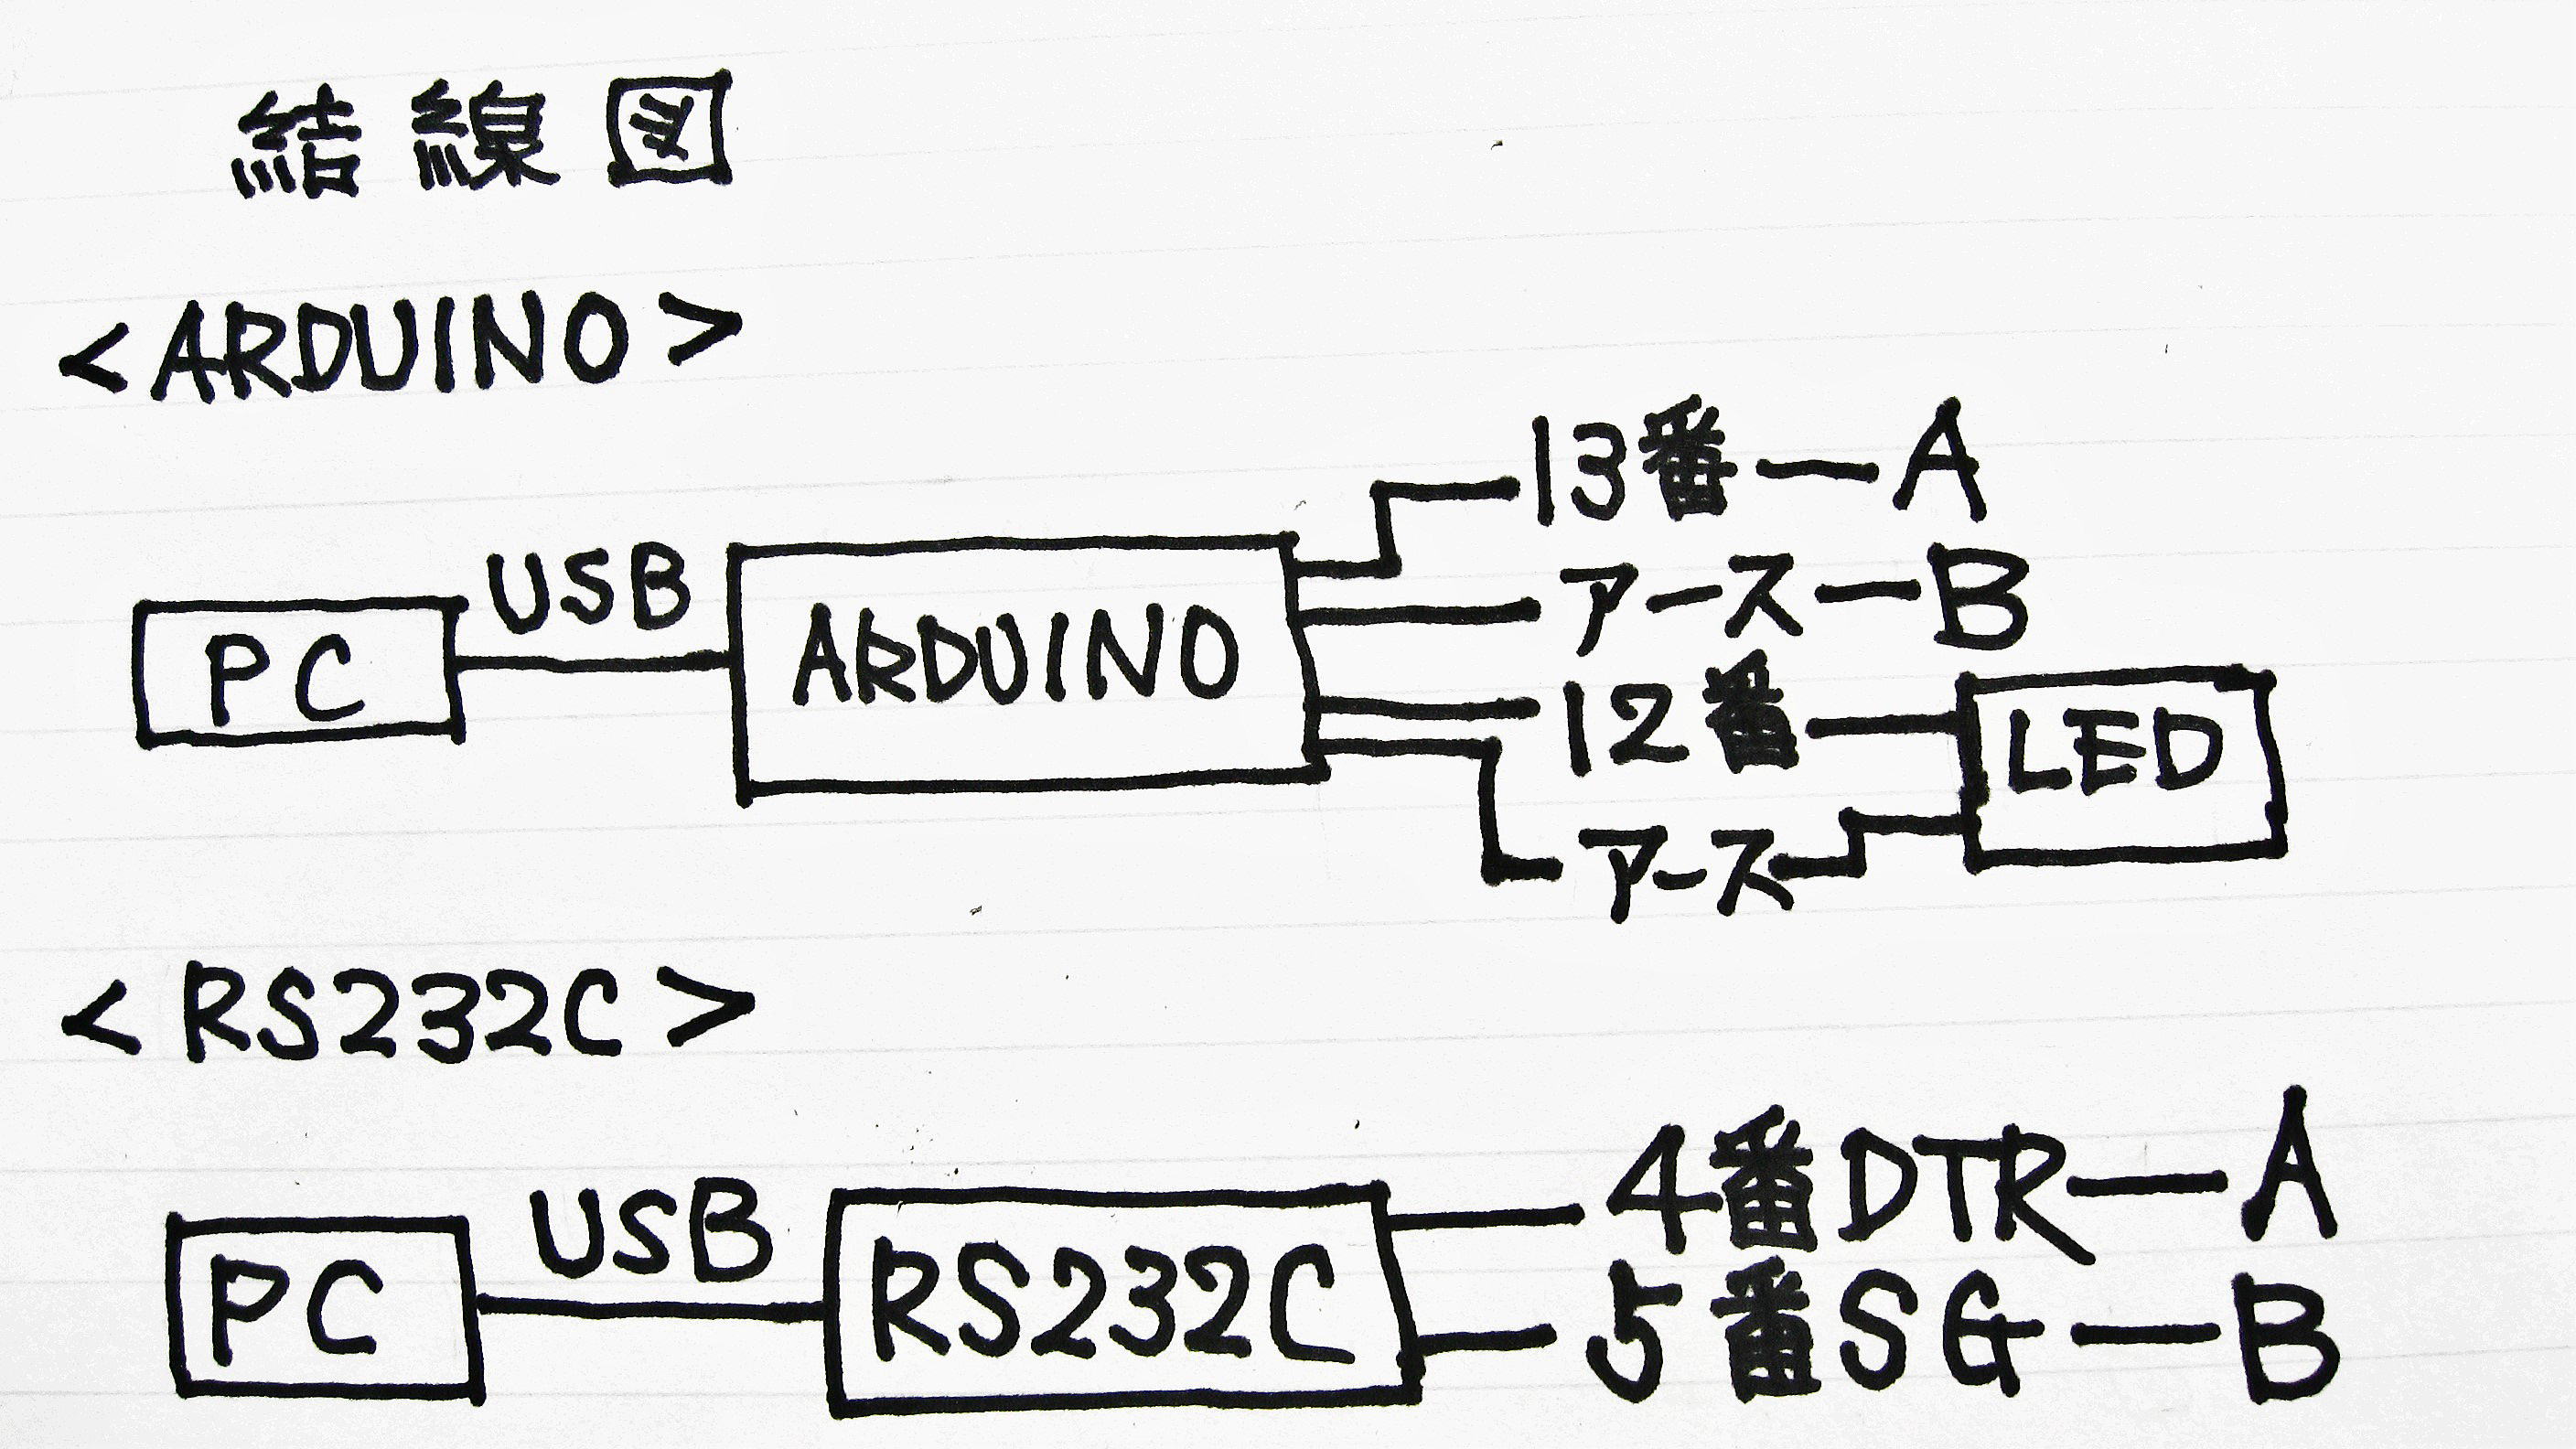 結線図
<ARDUINO>
13番 ー A
USB
アース ー B
PC
ARDUINO
12番
LED
アース
<RS232C>
4番DTR ー A
USB
PC
RS232C
5番SG ー B